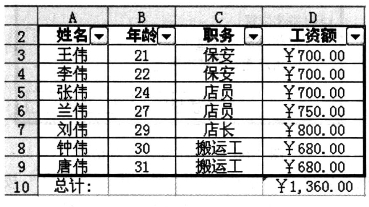 A B C D
2 姓名 年龄 职务 工资额
3 王伟 21 保安 ￥700.00
4 李伟 22 保安 ￥700.00
5 张伟 24 店员 ￥700.00
6 兰伟 27 店员 ￥750.00
7 刘伟 29 店长 ￥800.00
8 钟伟 30 搬运工 ￥680.00
9 唐伟 31 搬运工 ￥680.00
10 总计: ￥1,360.00